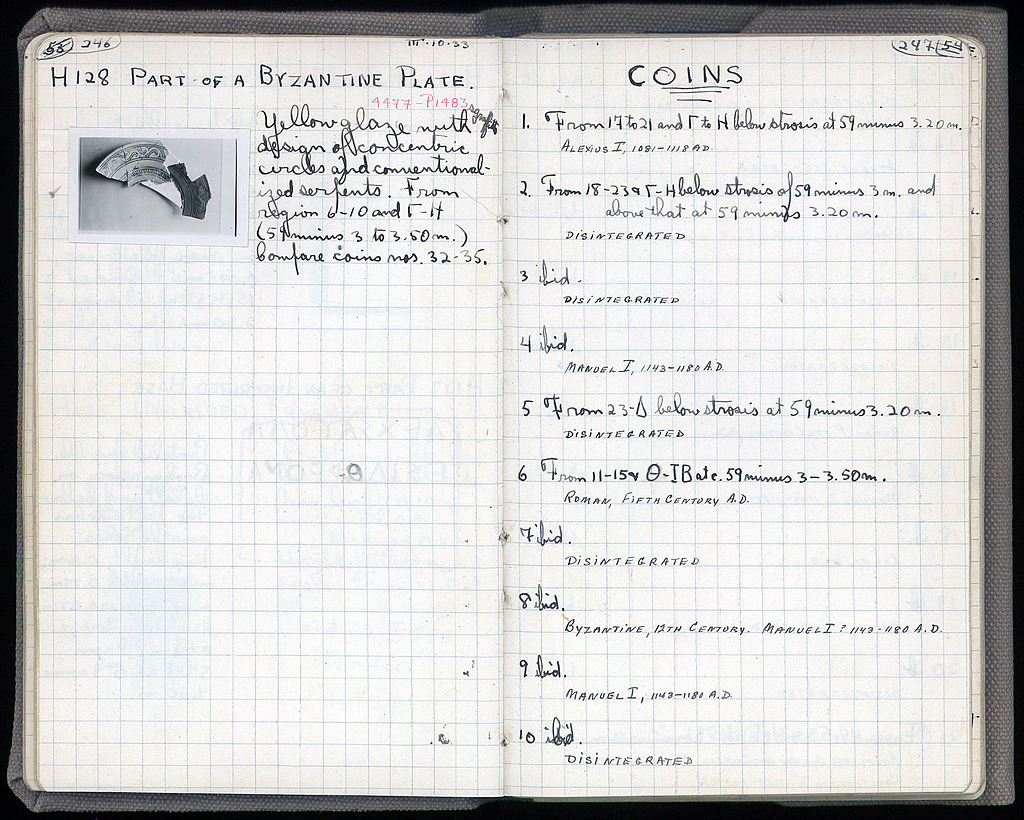 55 246
III·10·33
H128 PART OF A BYZANTINE PLATE.
4477-P1483
Yellow glaze with
design of concentric
circles and conventional-
ized serpents. From
region 6-10 and Γ-H
(59 minus 3 to 3.50m.)
Compare coins nos. 32-35.
Θ
247 54
COINS
1. From 17 to 21 and Γ to H below strosis at 59 minus 3.20m.
ALEXIUS I, 1081-1118 A.D.
2. From 18-23 & Γ-H below strosis of 59 minus 3m. and
above that at 59 minus 3.20m.
DISINTEGRATED
3 ibid.
DISINTEGRATED
4 ibid.
MANUEL I, 1143-1180 A.D.
5 From 23-Δ below strosis at 59 minus 3.20m.
DISINTEGRATED
6 From 11-15 & Θ-IB at c. 59 minus 3-3.50m.
ROMAN, FIFTH CENTURY A.D.
7 ibid.
DISINTEGRATED
8 ibid.
BYZANTINE, 12TH CENTURY. MANUEL I? 1143-1180 A.D.
9 ibid.
MANUEL I, 1143-1180 A.D.
10 ibid.
DISINTEGRATED